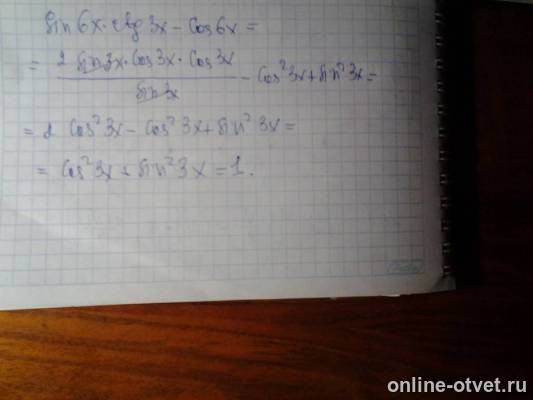 sin 6x · ctg 3x − cos 6x =
= 2 sin 3x · cos 3x · cos 3x / sin 3x − cos² 3x + sin² 3x =
= 2 cos² 3x − cos² 3x + sin² 3x =
= cos² 3x + sin² 3x = 1.
online-otvet.ru